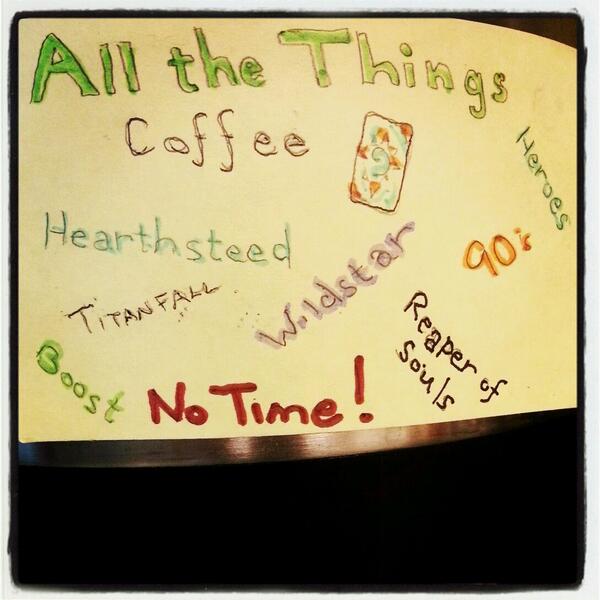 All the Things
Coffee
Heroes
Hearthsteed
90's
Wildstar
TITANFALL
Reaper of
Souls
Boost
No Time!